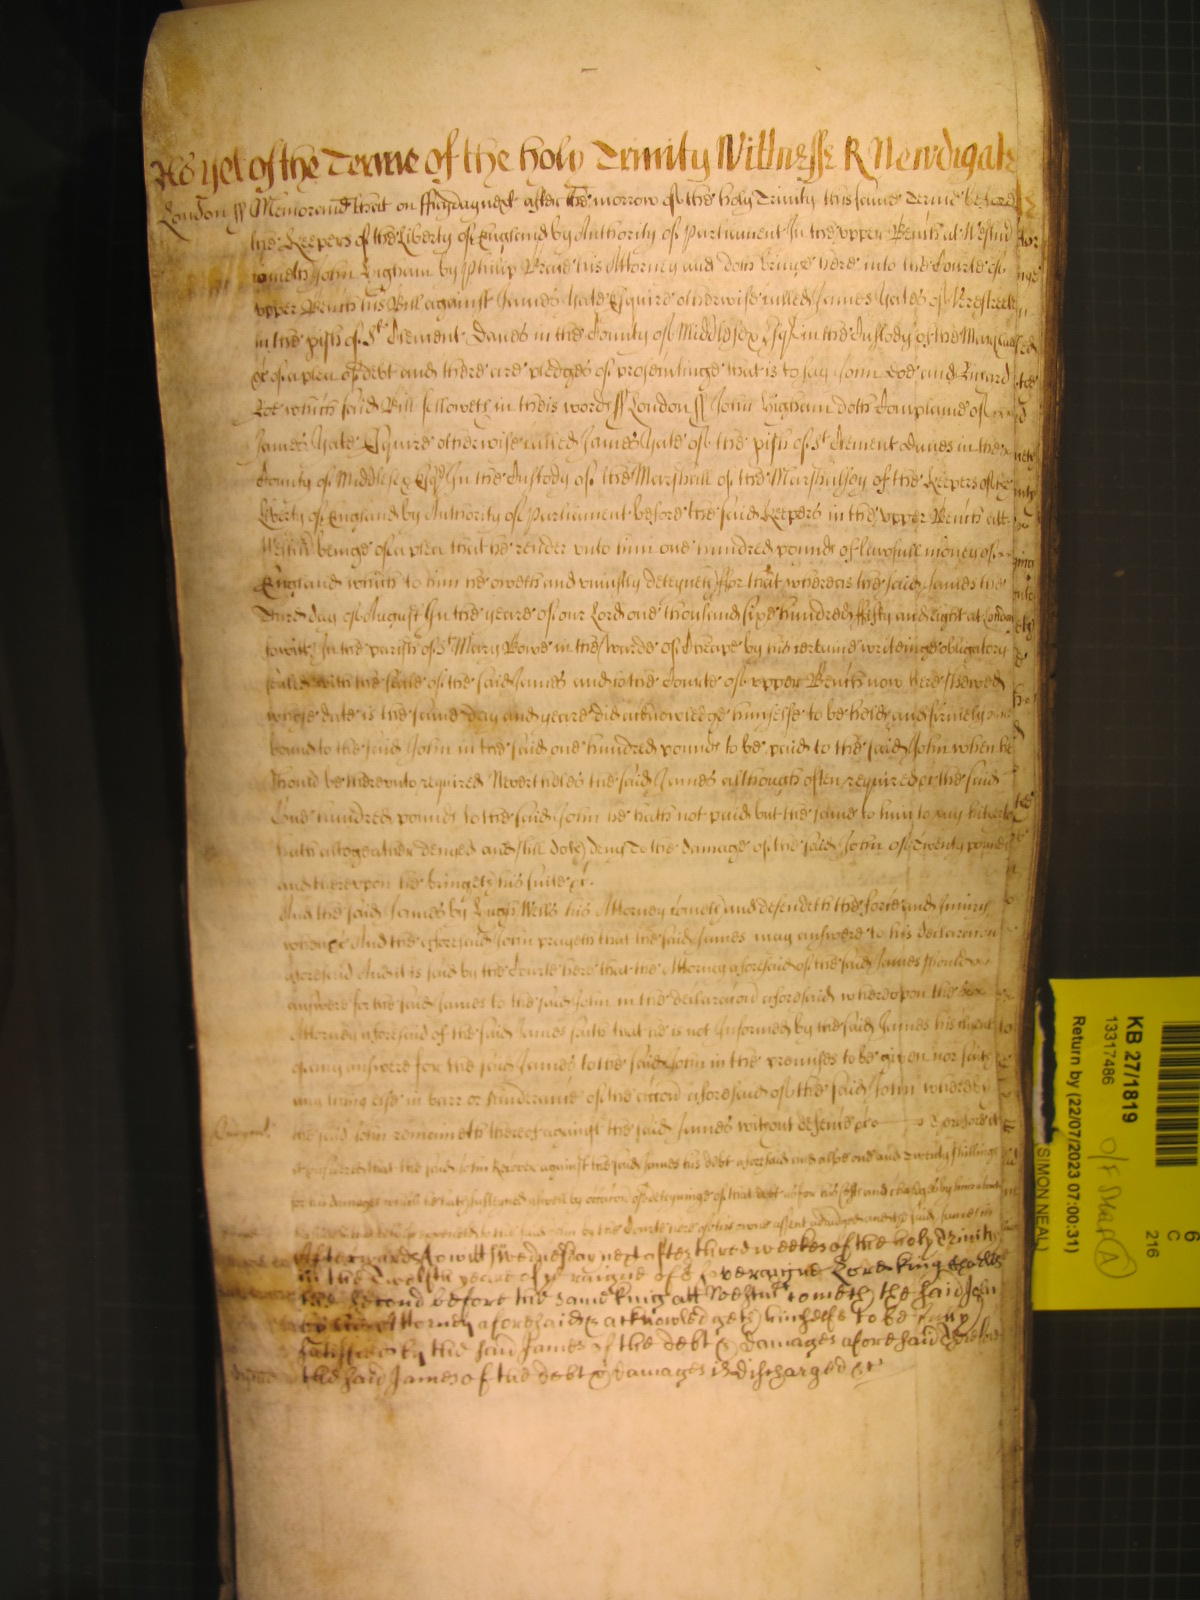 As yet of the Terme of the holy Trinity Wittnesse R Newdigate
London ss Memorand that on ffryday next after the morrow of the holy Trinity this same Terme before
the Keepers of the Liberty of England by Authority of Parliament In the upper Bench at Westm
cometh John Higham by Philip his Attorney and doth bringe here into the Courte of
upper Bench his Bill against James Yate Esquire otherwise called James Yates of
in the pish of St Clement Danes in the County of Middlesex Esq in the Custody of the Marshall
&c of a plea of debt and there are pledges of prosecutinge that is to say John Doe and Richard
Roe which said Bill followeth in theis words ss London ss John Higham doth Complaine of
James Yate Esquire otherwise called James Yate of the pish of St Clement Danes in the
County of Middlesex Esq In the Custody of the Marshall of the Marshalsey of the Keepers of the
Liberty of England by Authority of Parliament before the said Keepers in the upper Bench att
Westm beinge of a plea that he render unto him one hundred pounds of lawfull money of
England which to him he oweth and uniustly deteyneth ffor that whereas the said James the
Third day of August In the yeare of our Lord one thousand six hundred fifty and eight at London
towitt In the parish of St Mary Bowe in the warde of Cheape by his certaine writeinge obligatory
sealed with the seale of the said James and to the Courte of upper Bench now here shewed
whose date is the same day and yeare did acknowledge himselfe to be held and firmely
bound to the said John in the said one hundred pounds to be paid to the said John when he
should be thereunto required Neverthelesse the said James although often required &c the said
One hundred pounds to the said John he hath not paid but the same to him to pay hitherto
hath altogeather denied and still doth deny To the damage of the said John of Twenty pounds
and thereupon he bringeth his suite &c.
And the said James by Hugh Wells his Attorney cometh and defendeth the force and iniury
when &c And the aforesaid John prayeth that the said James may answere to his declaracion
aforesaid And it is said by the Courte here that the Attorney aforesaid of the said James should
answere for the said James to the said John in the declaracion aforesaid whereupon the same
Attorney aforesaid of the said James saith that he is not Informed by the said James his client
of any answere for the said James to the said John in the premises to be given nor saith
any thing else in barr or hinderance of the accion aforesaid of the said John whereby
the said John remaineth thereof against the said James without defence &c Therefore it
is considered that the said John Recover against the said James his debt aforesaid and alsoe one and Twenty shillings
for his damages which he hath susteyned aswell by occasion of deteyninge of that debt as for his costs and charges by him about
his suite in that behalfe to the said John by the Courte here of his owne assent adiudged and the said James in
Afterwards towitt Wednesday next after three weekes of the holy Trinity
in the Twelfth yeare of ye raigne of o Soveraigne Lord King Charles
the Second before the same King att Westmr cometh the said John
by his Attorney aforesaid & acknowledgeth himselfe to be fully
satisfied by the said James of the debt & damages aforesaid Therefore
the said James of the debt & damages is discharged &c
KB 27/1819
13317486
Return by (22/07/2023 07:00:31)
(SIMON NEAL)
6
C
216